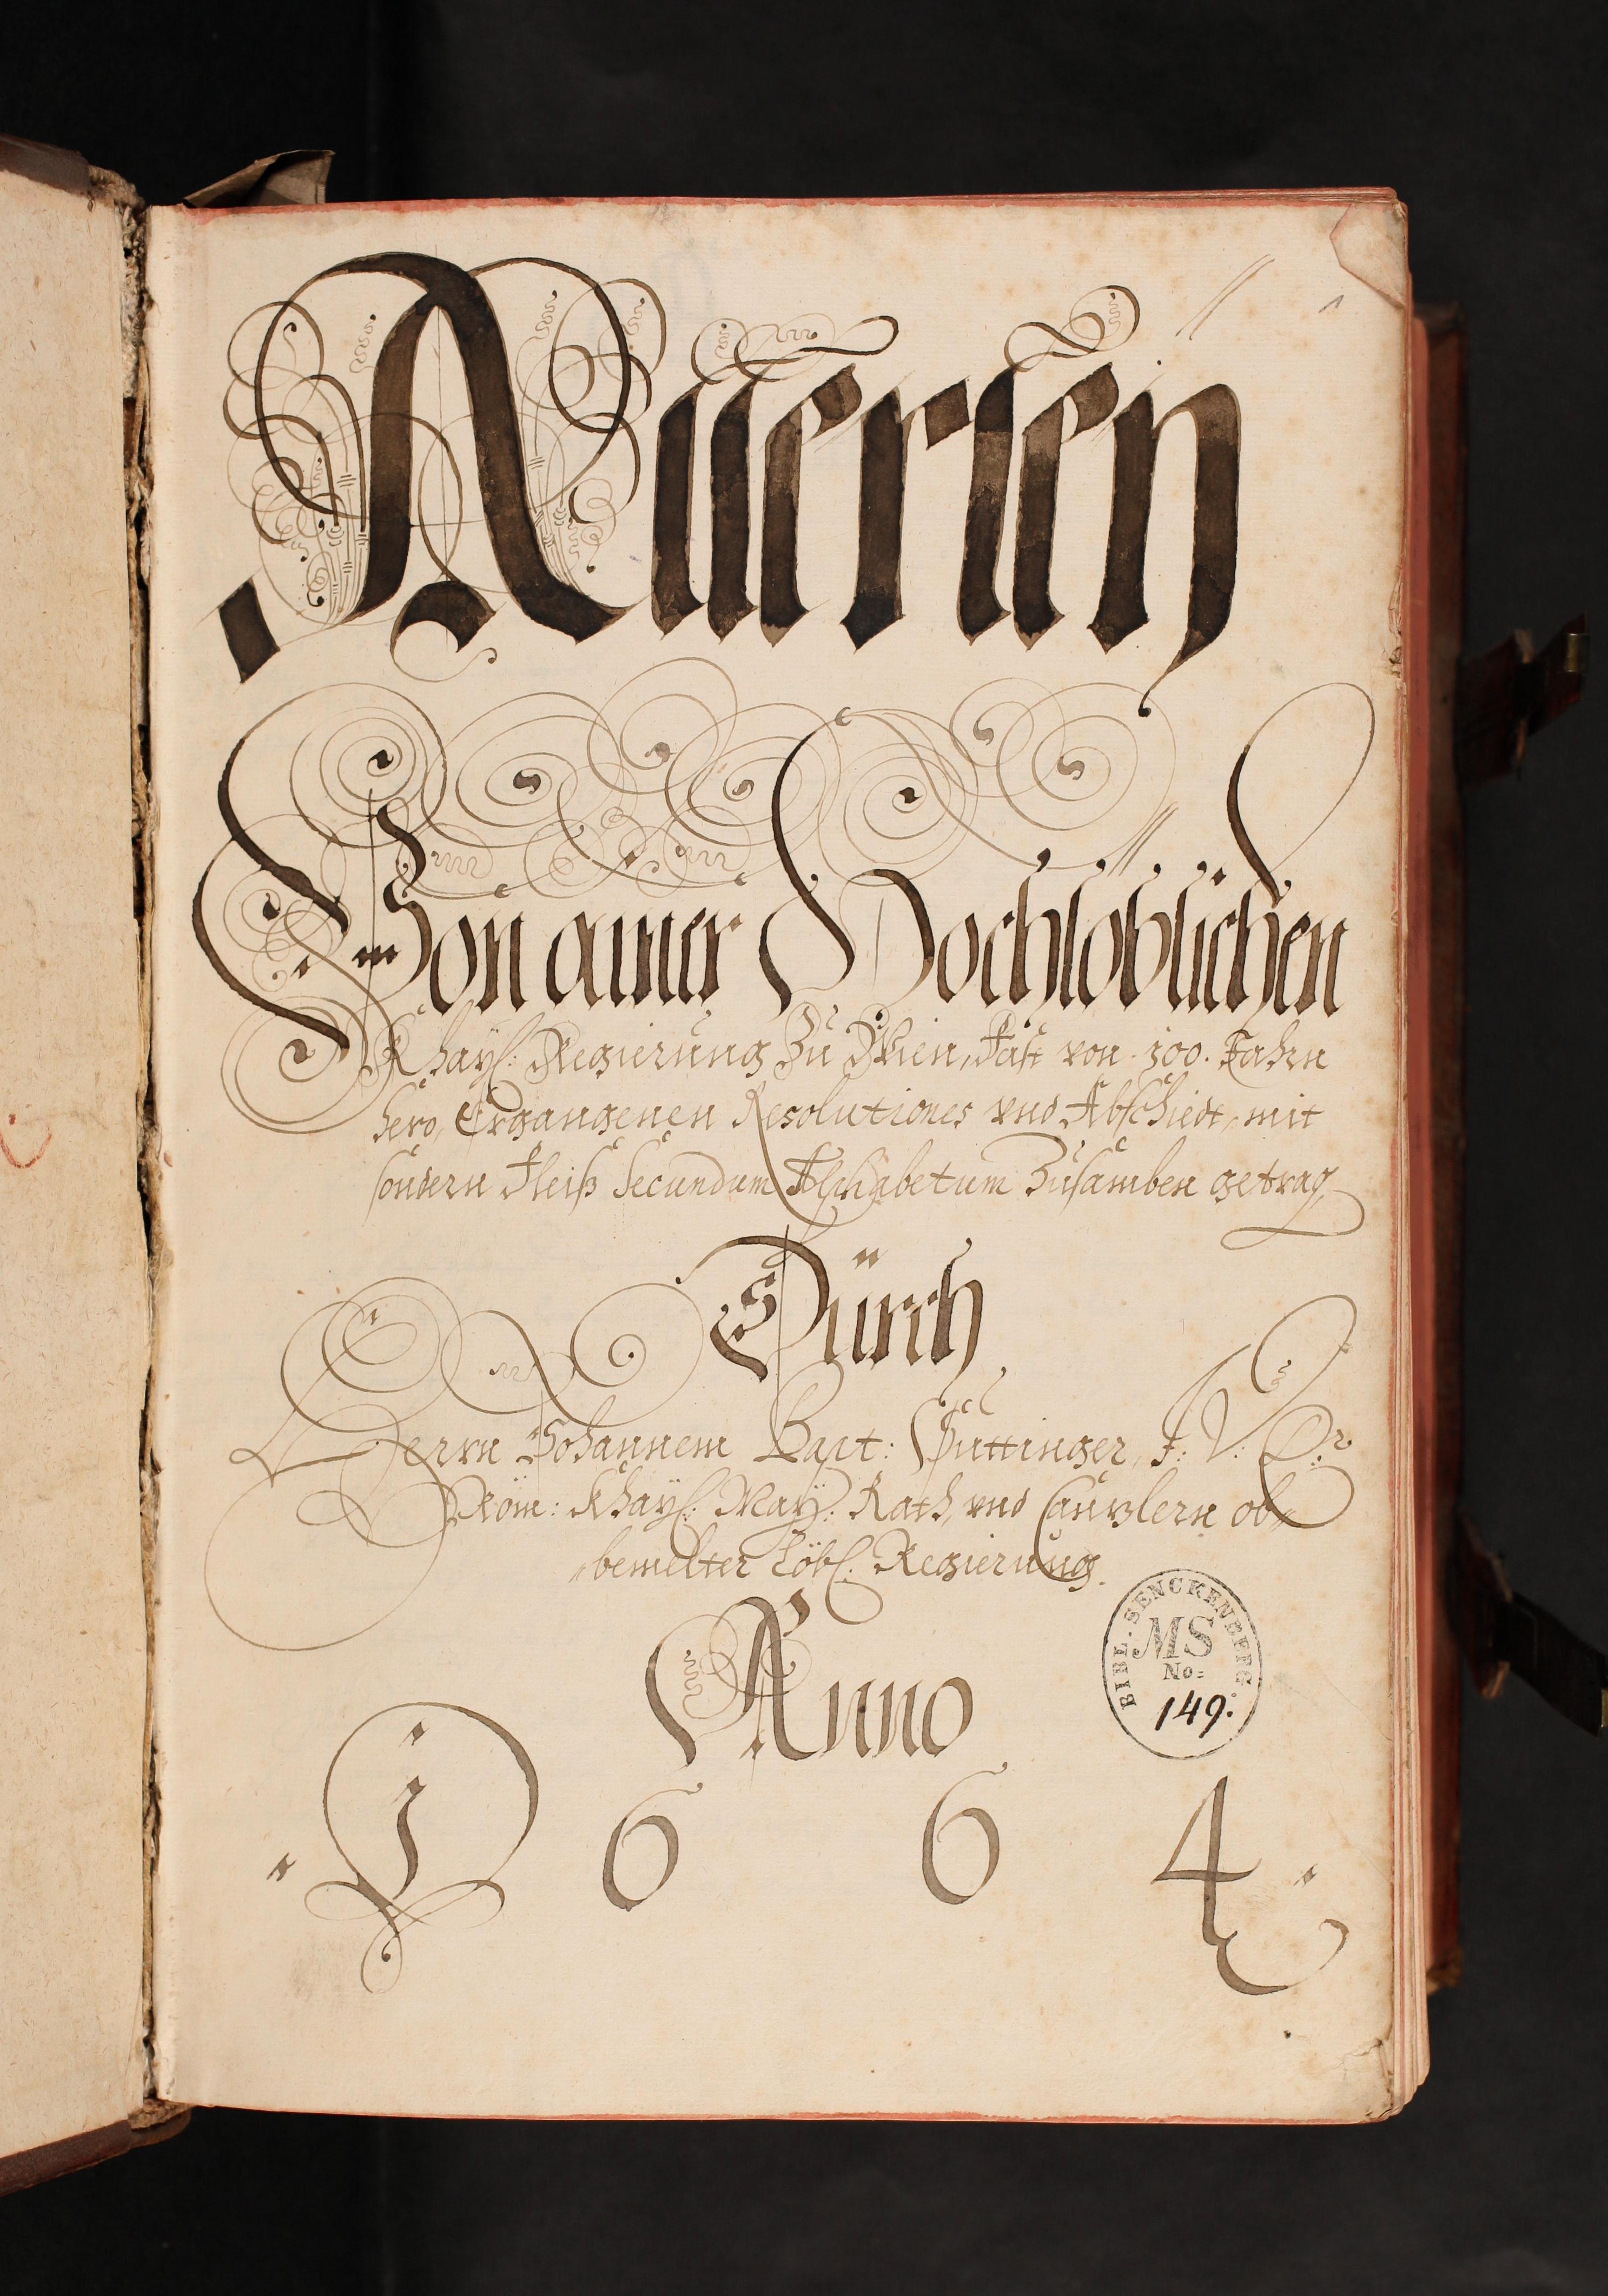 Von ainer Hochloblichen
Khayl: Regierung Zu Wien, Fast von 100. Jahrn
hero, Ergangenen Resolutiones vnd Abschiedt, mit
sondern Fleiß Secundum Alphabetum Zusamben getrag
Dürch
Herrn Johannem Bapt: Suttinger, J: V: Dr
Röm: Khayl: May: Rath, vnd Canzlern ob=
=bemelter Löbl: Regierung.
Anno
1 6 6 4
BIBL. SENCKENBERG.
MS
No:
149.